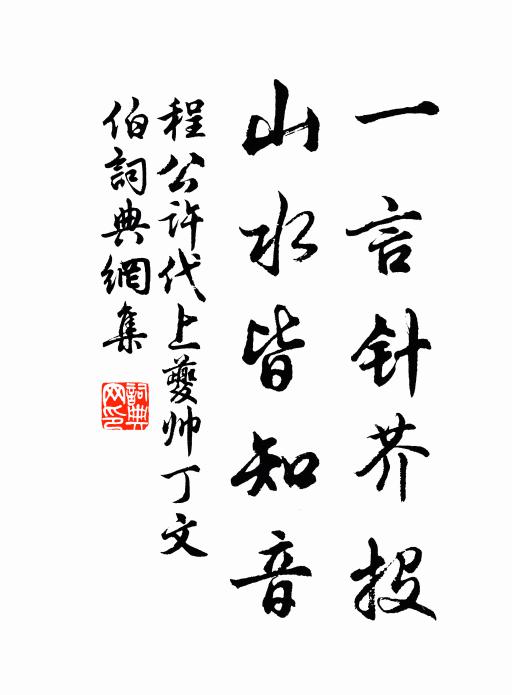 一言针芥投
山水皆知音
程公许代上夔帅丁文
伯詞典網集
詞典
网印